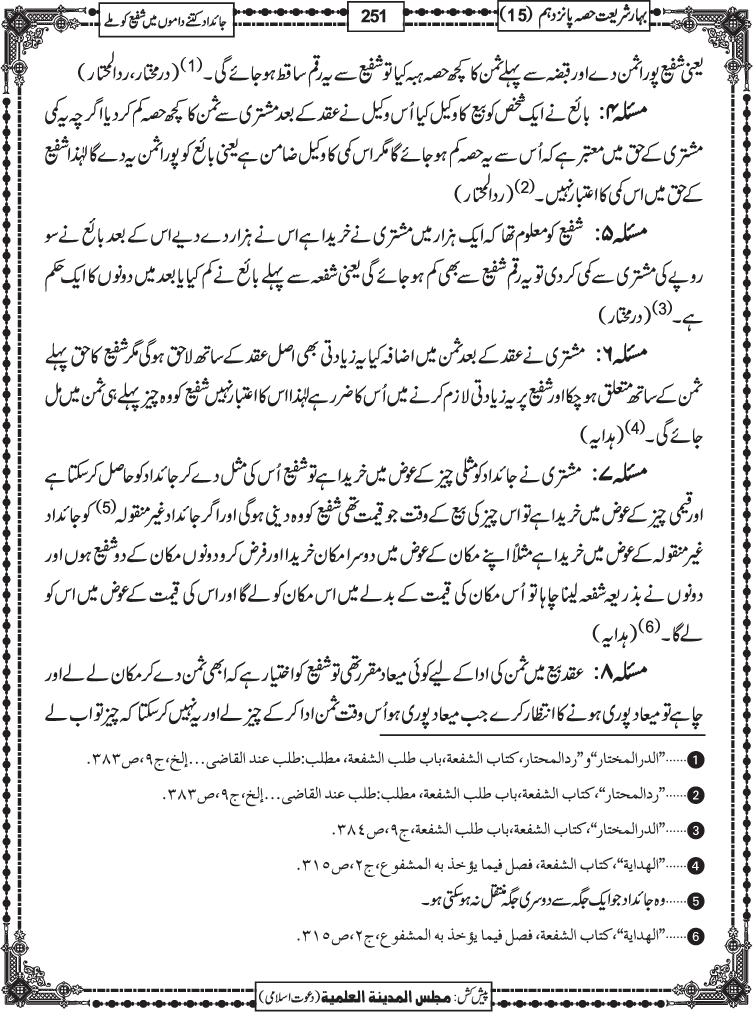 بہارشریعت حصہ پانزدہم (15)
251
جائداد کتنے داموں میں شفیع کو ملے
یعنی شفیع پورا ثمن دے اور قبضہ سے پہلے ثمن کا کچھ حصہ ہبہ کیا تو شفیع سے یہ رقم ساقط ہو جائے گی۔(1) (درمختار، ردالمحتار)
مسئلہ ۴: بائع نے ایک شخص کو بیع کا وکیل کیا اُس وکیل نے عقد کے بعد مشتری سے ثمن کا کچھ حصہ کم کر دیا اگرچہ یہ کمی
مشتری کے حق میں معتبر ہے کہ اُس سے یہ حصہ کم ہو جائے گا مگر اس کمی کا وکیل ضامن ہے یعنی بائع کو پورا ثمن یہ دے گا لہٰذا شفیع
کے حق میں اس کمی کا اعتبار نہیں۔(2) (ردالمحتار)
مسئلہ ۵: شفیع کو معلوم تھا کہ ایک ہزار میں مشتری نے خریدا ہے اس نے ہزار دے دیے اس کے بعد بائع نے سو
روپے کی مشتری سے کمی کر دی تو یہ رقم شفیع سے بھی کم ہو جائے گی یعنی شفعہ سے پہلے بائع نے کم کیا یا بعد میں دونوں کا ایک حکم
ہے۔(3) (درمختار)
مسئلہ ۶: مشتری نے عقد کے بعد ثمن میں اضافہ کیا یہ زیادتی بھی اصل عقد کے ساتھ لاحق ہوگی مگر شفیع کا حق پہلے
ثمن کے ساتھ متعلق ہو چکا اور شفیع پر یہ زیادتی لازم کرنے میں اُس کا ضرر ہے لہٰذا اس کا اعتبار نہیں شفیع کو وہ چیز پہلے ہی ثمن میں مل
جائے گی۔(4) (ہدایہ)
مسئلہ ۷: مشتری نے جائداد کو مثلی چیز کے عوض میں خریدا ہے تو شفیع اُس کی مثل دے کر جائداد کو حاصل کر سکتا ہے
اور قیمی چیز کے عوض میں خریدا ہے تو اس چیز کی بیع کے وقت جو قیمت تھی شفیع کو وہ دینی ہوگی اور اگر جائداد غیر منقولہ(5) کو جائداد
غیر منقولہ کے عوض میں خریدا ہے مثلاً اپنے مکان کے عوض میں دوسرا مکان خریدا اور فرض کرو دونوں مکان کے دو شفیع ہوں اور
دونوں نے بذریعہ شفعہ لینا چاہا تو اُس مکان کی قیمت کے بدلے میں اس مکان کو لے گا اور اس کی قیمت کے عوض میں اس کو
لے گا۔(6) (ہدایہ)
مسئلہ ۸: عقد بیع میں ثمن کی ادا کے لیے کوئی میعاد مقرر تھی تو شفیع کو اختیار ہے کہ ابھی ثمن دے کر مکان لے لے اور
چاہے تو میعاد پوری ہونے کا انتظار کرے جب میعاد پوری ہو اُس وقت ثمن ادا کر کے چیز لے اور یہ نہیں کر سکتا کہ چیز تو اب لے
1 ......"الدرالمختار" و "ردالمحتار، کتاب الشفعة، باب طلب الشفعة، مطلب: طلب عند القاضی...إلخ، ج۹، ص۳۸۳.
2 ......"ردالمحتار"، کتاب الشفعة، باب طلب الشفعة، مطلب: طلب عند القاضی...إلخ، ج۹، ص۳۸۳.
3 ......"الدرالمختار"، کتاب الشفعة، باب طلب الشفعة، ج۹، ص۳۸٤.
4 ......"الهداية"، کتاب الشفعة، فصل فيما يؤخذ به المشفوع، ج۲، ص۳۱۵.
5 ......وہ جائداد جو ایک جگہ سے دوسری جگہ منتقل نہ ہوسکتی ہو۔
6 ......"الهداية"، کتاب الشفعة، فصل فيما يؤخذ به المشفوع، ج۲، ص۳۱۵.
پیش کش: مجلس المدینة العلمیة (دعوت اسلامی)